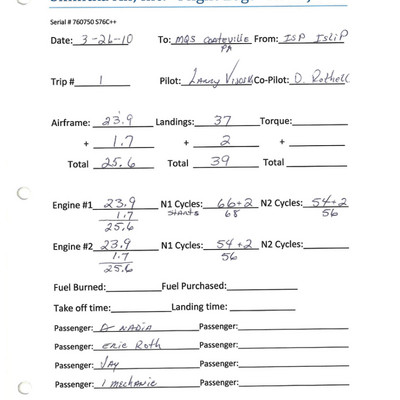 Serial # 760750 S76C++
Date: 3-26-10 To: MQS Coatesville PA From: ISP Islip
Trip # 1 Pilot: Larry Co-Pilot: D. Rothell
Airframe: 23.9 Landings: 37 Torque:
+ 1.7 + 2 +
Total 25.6 Total 39 Total
Engine #1 23.9 N1 Cycles: 66+2 N2 Cycles: 54+2
1.7 STARTS 68 56
25.6
Engine #2 23.9 N1 Cycles: 54+2 N2 Cycles:
1.7 56
25.6
Fuel Burned: Fuel Purchased:
Take off time: Landing time:
Passenger: NADIA Passenger:
Passenger: Eric Roth Passenger:
Passenger: JAY Passenger:
Passenger: 1 mechanic Passenger: